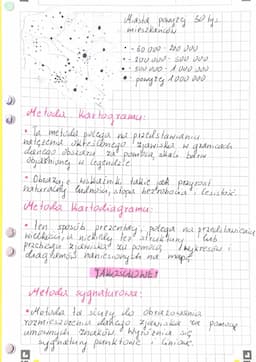 Miasta powyżej 50 tys.
mieszkańców
50 000 - 200 000
200 000 - 500 000
500 000 - 1 000 000
powyżej 1 000 000
Metoda kartogramu:
• Ta metoda polega na przedstawianiu
natężenia określonego zjawiska w granicach
danego obszaru za pomocą skali barw
objaśnionej w legendzie.
• Obrazuje wskaźniki takie jak przyrost
naturalny ludności, stopa bezrobocia i lesistość.
Metoda kartodiagramu:
• Ten sposób prezentacji polega na przedstawieniu
wielkości, a niekiedy też struktury lub
przebiegu zjawiska za pomocą wykresów i
diagramów naniesionych na mapę.
JAKOŚCIOWE:
Metoda sygnaturowa:
• Metoda ta służy do obrazowania
rozmieszczenia danego zjawiska za pomocą
umownych znaków. Wyróżnia się
sygnatury punktowe i liniowe.